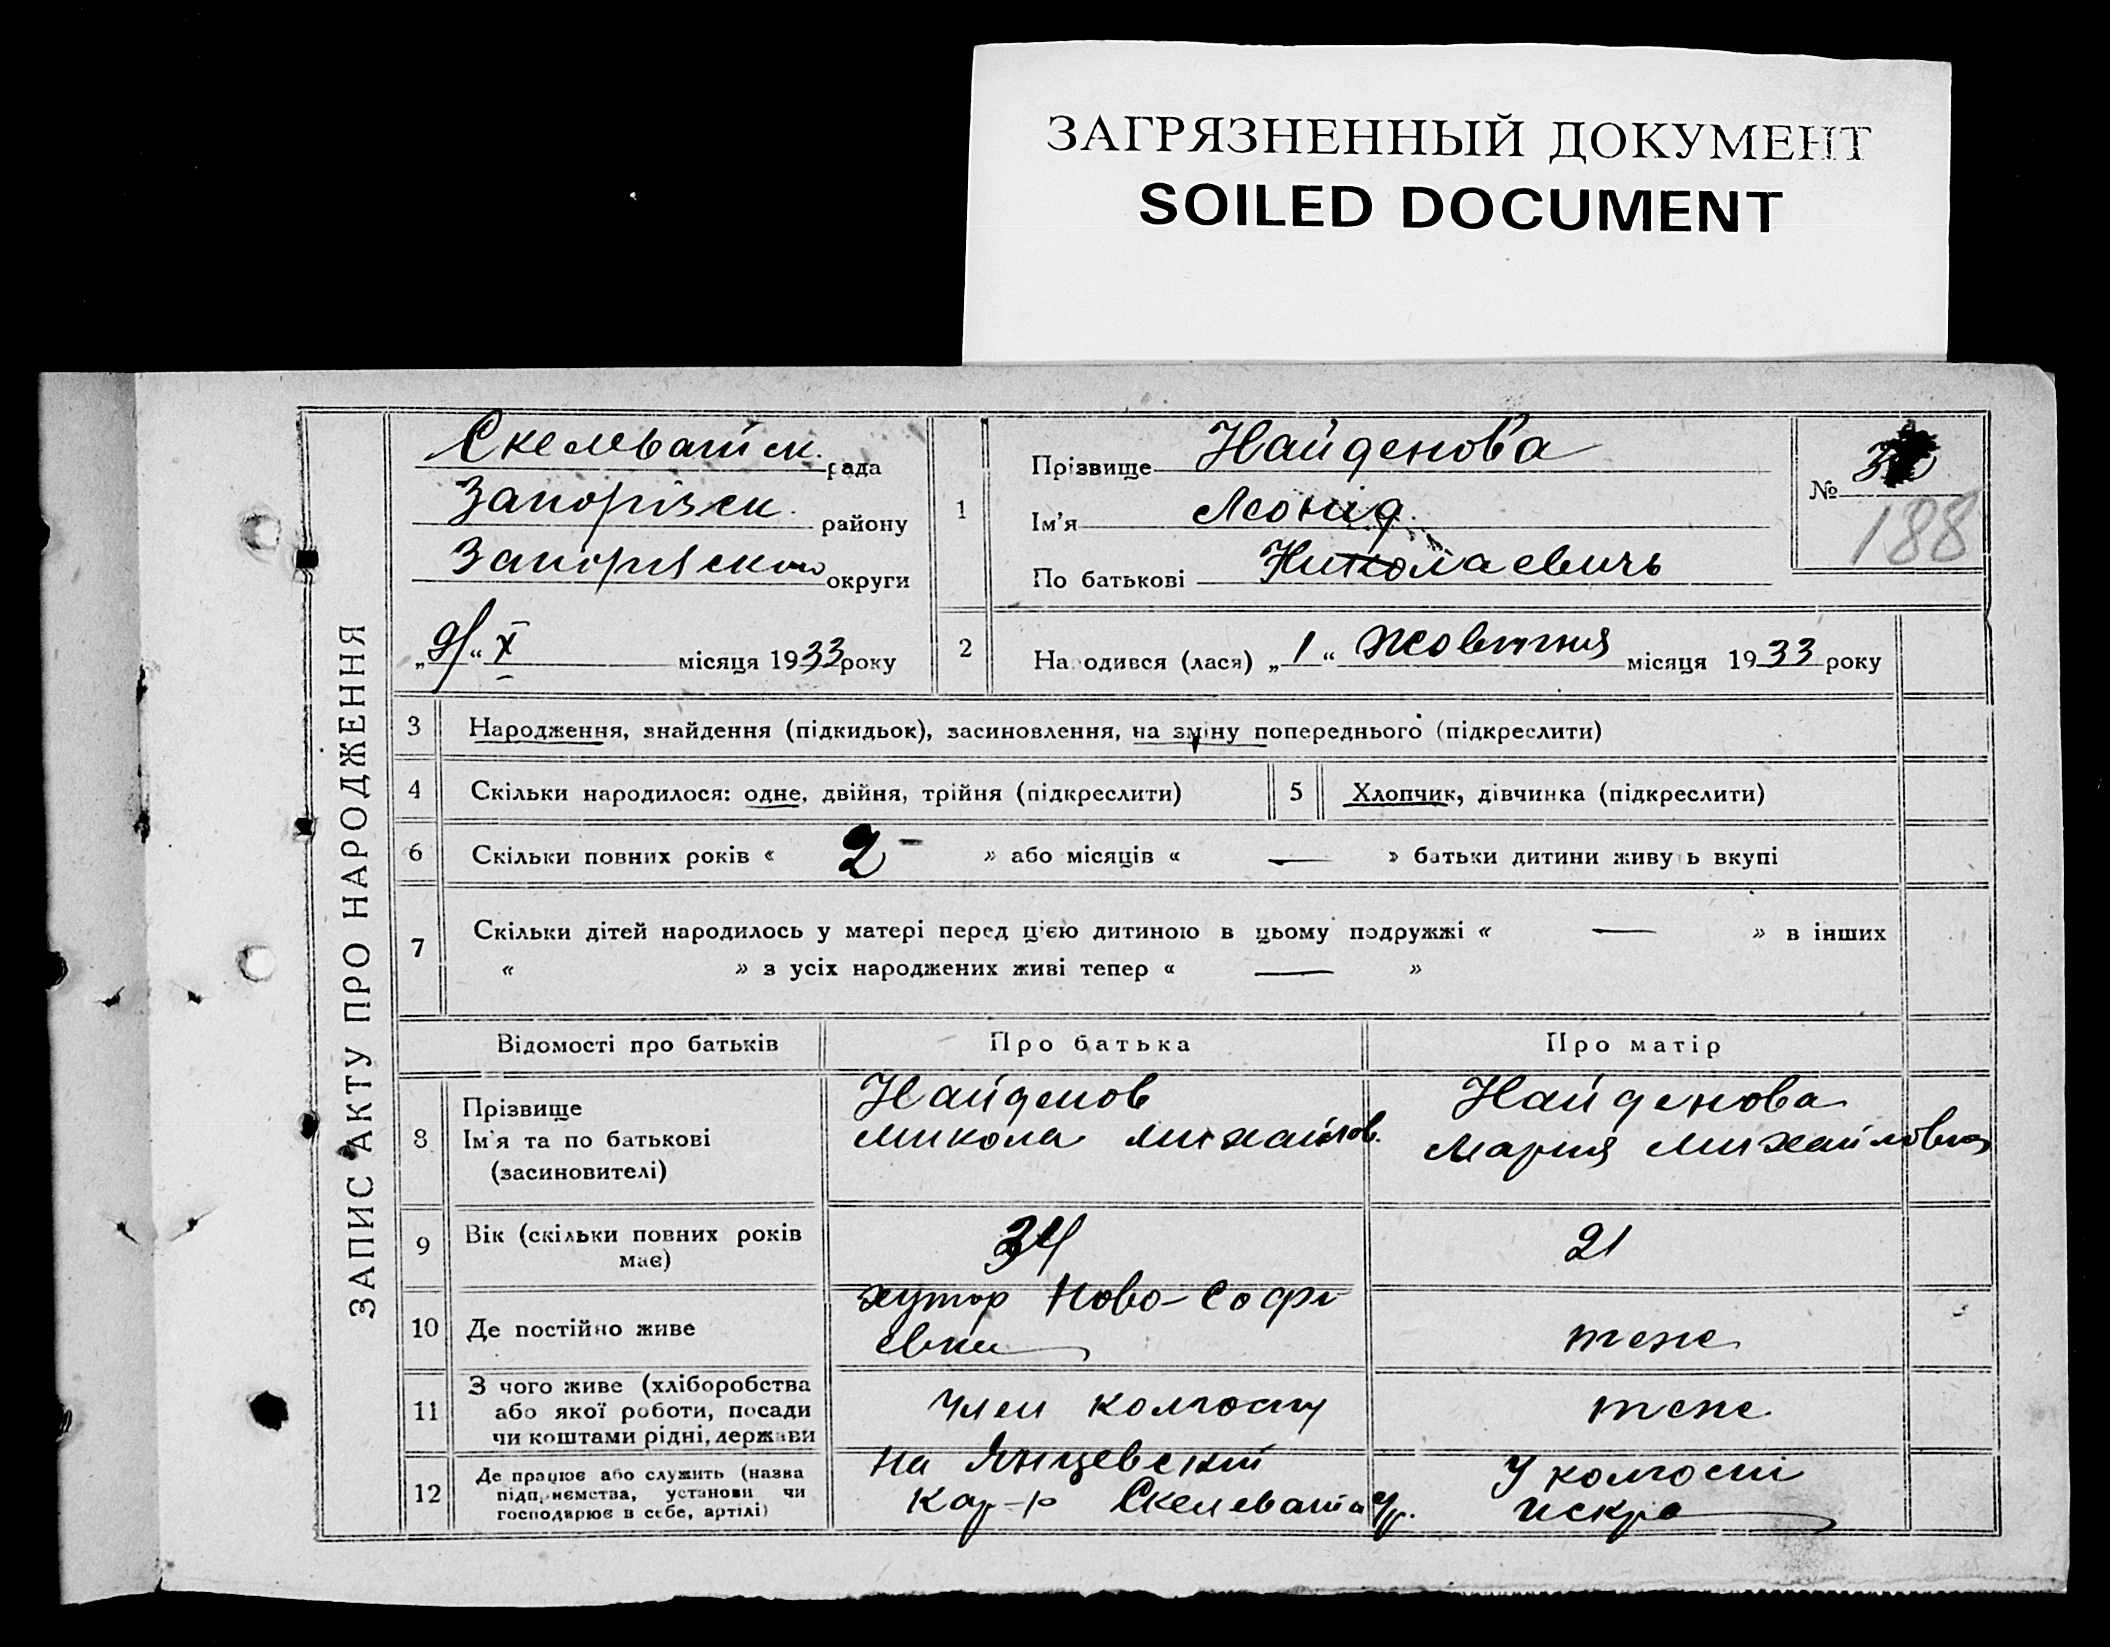 ЗАГРЯЗНЕННЫЙ ДОКУМЕНТ
SOILED DOCUMENT
ЗАПИС АКТУ ПРО НАРОДЖЕННЯ
Скелеватск. рада
Запорізск. району
округи
„9“ X місяця 1933 року
1 Прізвище Найденова
Ім'я Леонид
По батькові Николаевичь
№
188
2 Народився (лася) „1“ Жовтня місяця 1933 року
3 Народження, знайдення (підкидьок), засиновлення, на зміну попереднього (підкреслити)
4 Скільки народилося: одне, двійня, трійня (підкреслити) 5 Хлопчик, дівчинка (підкреслити)
6 Скільки повних років « 2 – » або місяців « — » батьки дитини живуть вкупі
7 Скільки дітей народилось у матері перед ц'єю дитиною в цьому подружжі « — » в інших
« » з усіх народжених живі тепер « — »
Відомості про батьків Про батька Про матір
8 Прізвище
Ім'я та по батькові
(засиновителі)
Найденов
Микола Михайлов.
Найденова
Мария Михайловна
9 Вік (скільки повних років
має)
34
21
10 Де постійно живе
хутор Ново-Софі
евки
теже
11 З чого живе (хліборобства
або якої роботи, посади
чи коштами рідні, держави
Член колгоспу
теже
12 Де працює або служить (назва
підприємства, установи чи
господарює в себе, артілі)
на Янцевскій
кар-р
У колгоспі
Искра